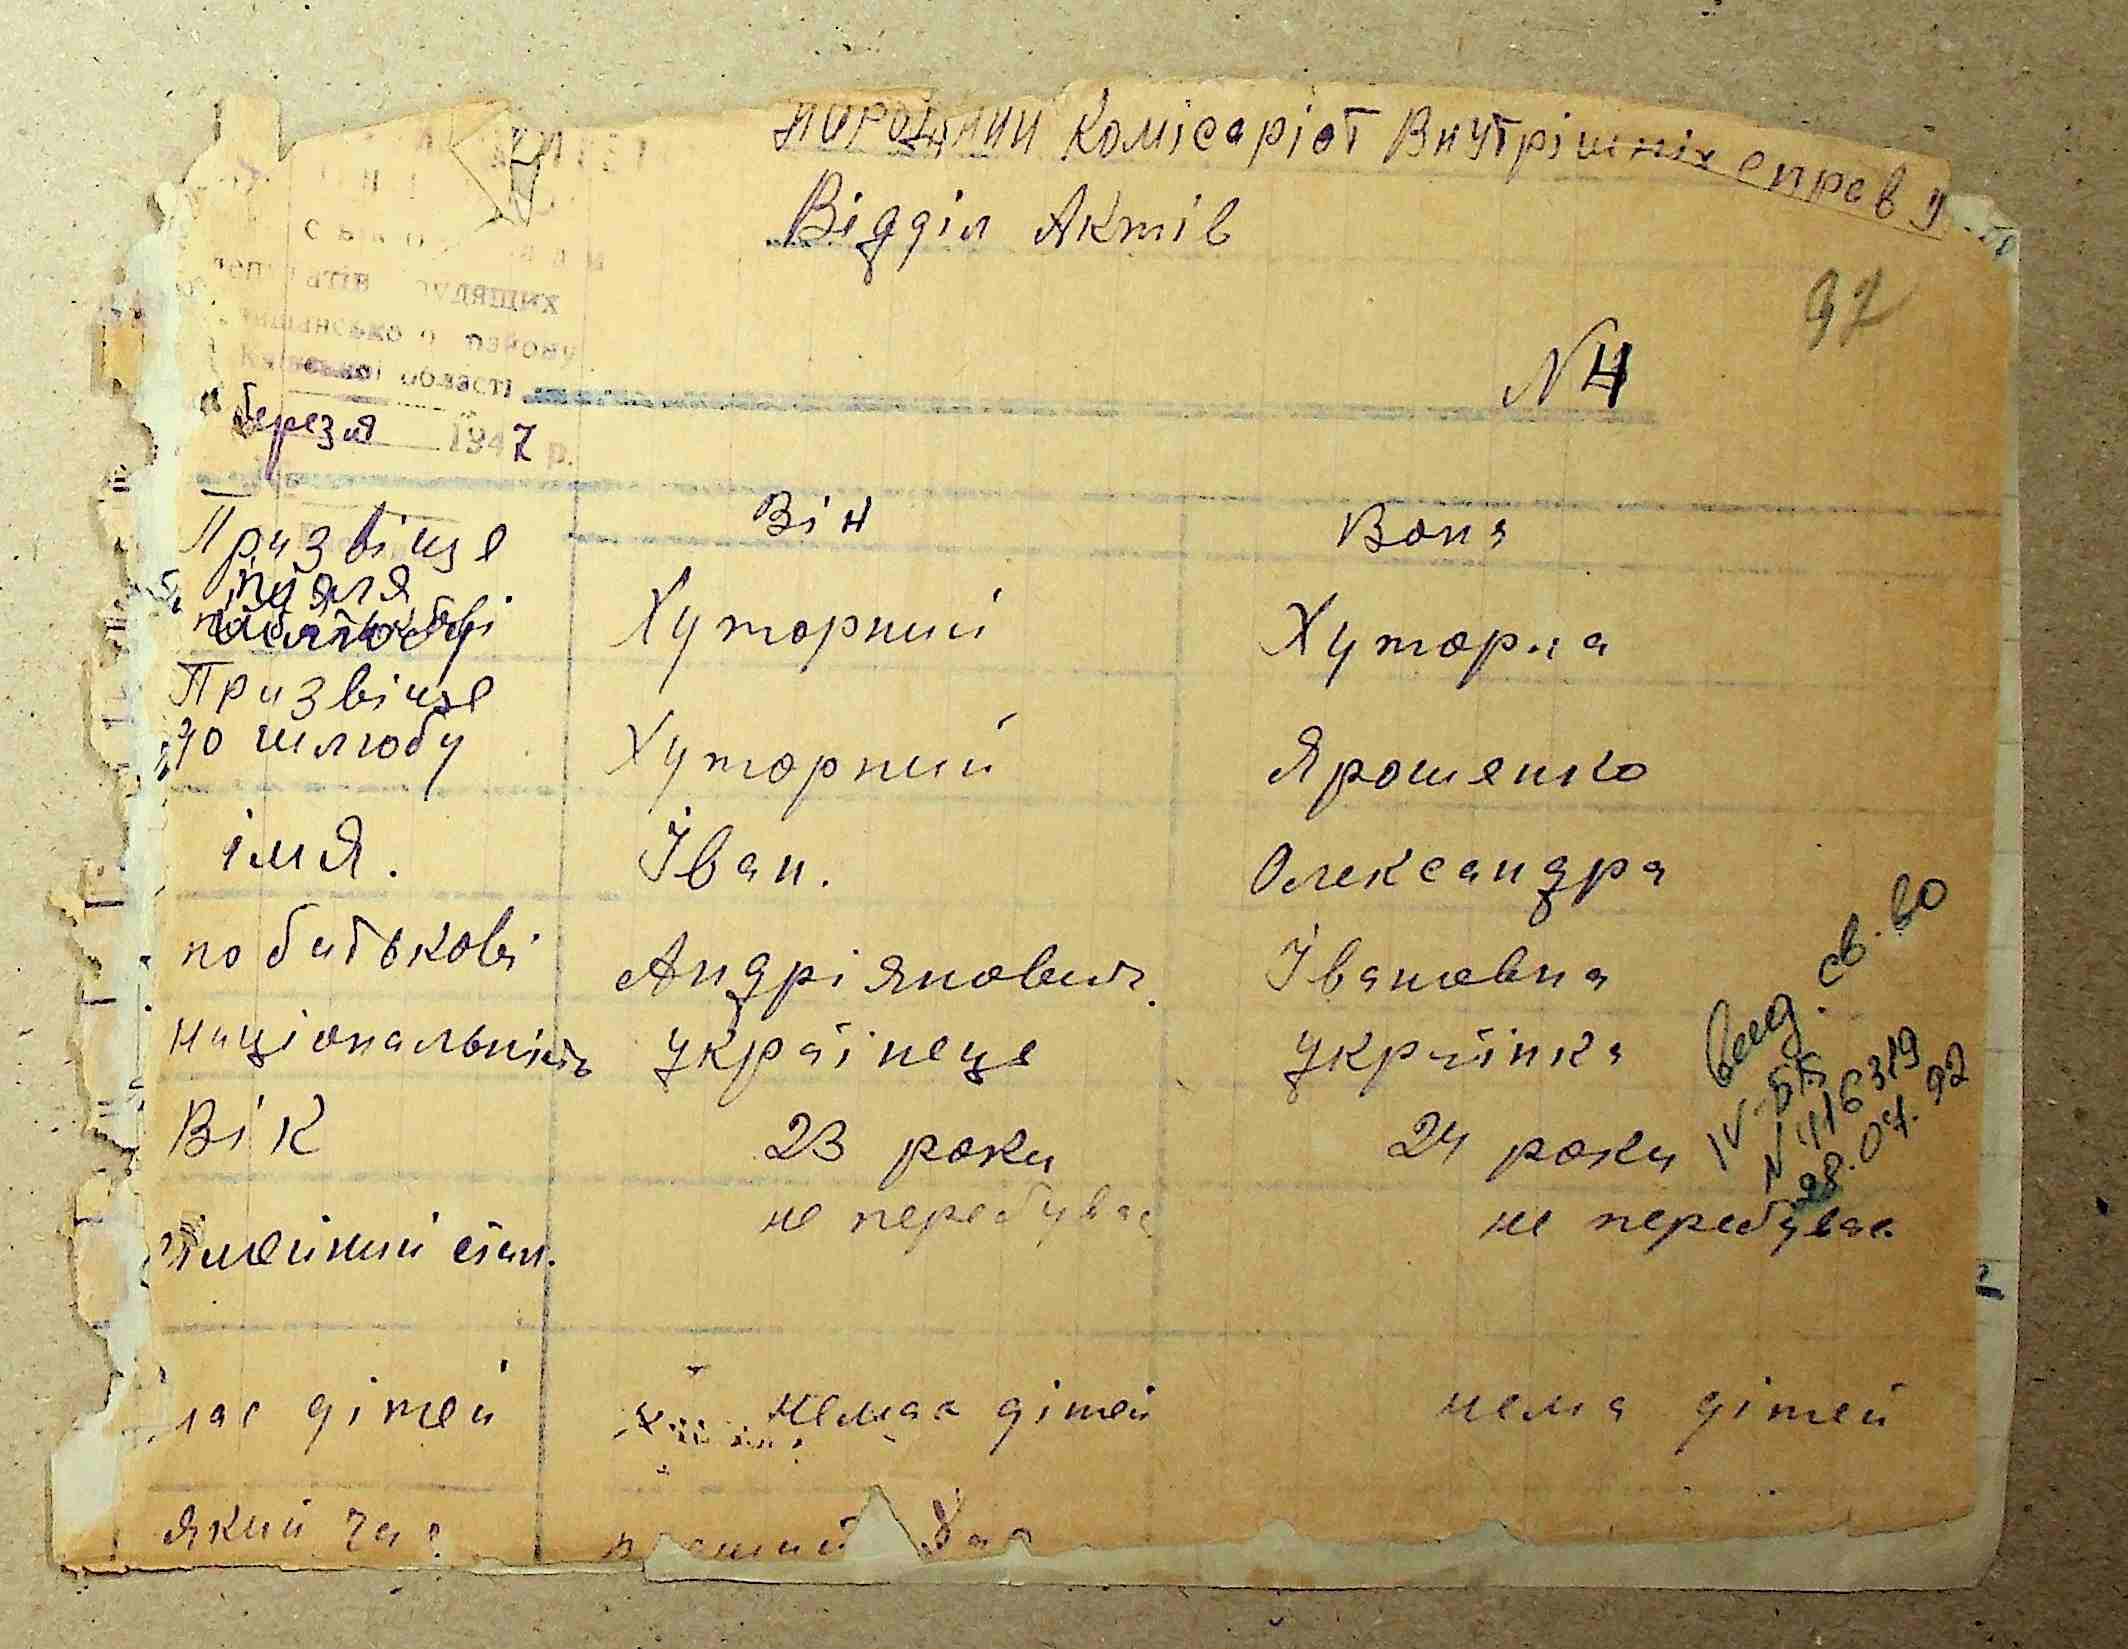 Народний Комісаріот Внутрішніх справ У
Відділ Актів
97
трудящих
району
області
N 4
березня 1947 р.
Він Вона
Призвіще
після
шлюбу Хуторний Хуторна
Призвіще
до шлюбу Хуторний Ярошенко
імя. Іван. Олександра
по батькові Андріянович. Івановна
національність українець українка
Вік 23 роки 24 роки
сімейний стан. не перебуває не перебуває
має дітей немає дітей нема дітей
який час
выд. св. во
IV-БК
N 416319
28.04.92